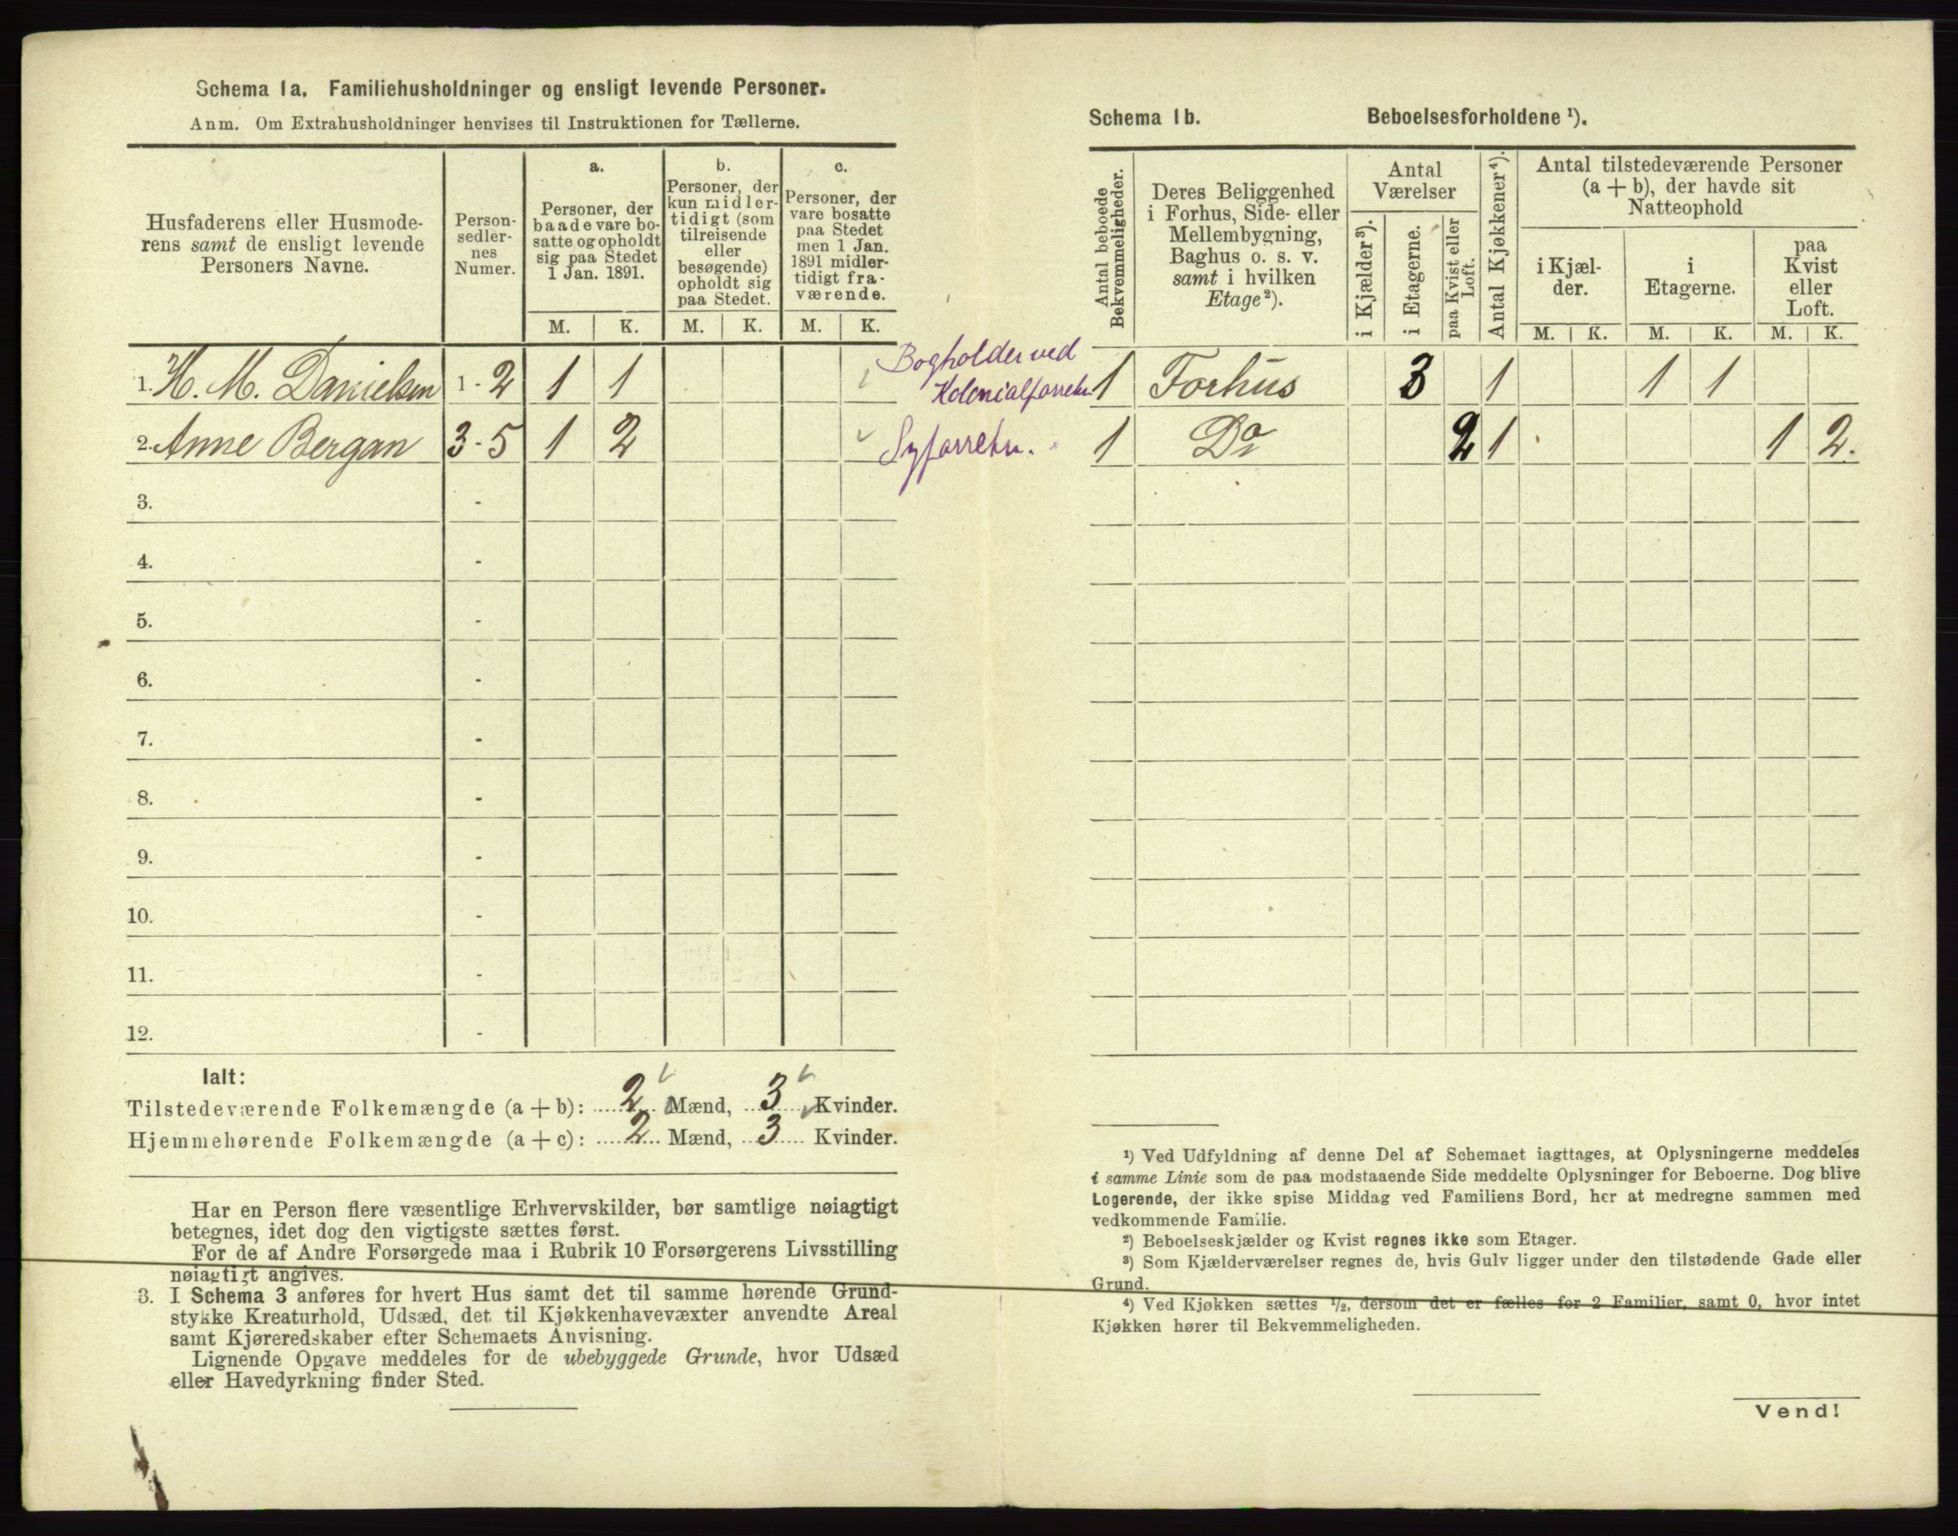 Schema 1a. Familiehusholdninger og ensligt levende Personer.
Anm. Om Extrahusholdninger henvises til Instruktionen for Tællerne.
Husfaderens eller Husmode-
rens samt de ensligt levende
Personers Navne.
Person-
sedler-
nes
Numer.
a.
Personer, der
baade vare bo-
satte og opholdt
sig paa Stedet
1 Jan. 1891.
b.
Personer, der
kun midler-
tidigt (som
tilreisende
eller
besøgende)
opholdt sig
paa Stedet.
c.
Personer, der
vare bosatte
paa Stedet
men 1 Jan.
1891 midler-
tidigt fra-
værende.
M. K. M. K. M. K.
1. H. M. Danielsen 1 - 2 1 1
2. Anne Bergan 3 - 5 1 2
3. -
4. -
5. -
6. -
7. -
8. -
9. -
10. -
11. -
12. -
Bogholder ved
Kolonialforretn.
Syforretn.
Ialt:
Tilstedeværende Folkemængde (a + b): 2 Mænd, 3 Kvinder.
Hjemmehørende Folkemængde (a + c): 2 Mænd, 3 Kvinder.
Har en Person flere væsentlige Erhvervskilder, bør samtlige nøiagtigt
betegnes, idet dog den vigtigste sættes først.
For de af Andre Forsørgede maa i Rubrik 10 Forsørgerens Livsstilling
nøiagtigt angives.
3. I Schema 3 anføres for hvert Hus samt det til samme hørende Grund-
stykke Kreaturhold, Udsæd, det til Kjøkkenhavevæxter anvendte Areal
samt Kjøreredskaber efter Schemaets Anvisning.
Lignende Opgave meddeles for de ubebyggede Grunde, hvor Udsæd
eller Havedyrkning finder Sted.
Schema 1b. Beboelsesforholdene ¹).
Antal beboede
Bekvemmeligheder.
Deres Beliggenhed
i Forhus, Side- eller
Mellembygning,
Baghus o. s. v.
samt i hvilken
Etage²).
Antal
Værelser
i Kjælder³).
i Etagerne.
paa Kvist eller
Loft.
Antal Kjøkkener⁴).
Antal tilstedeværende Personer
(a + b), der havde sit
Natteophold
i Kjæl-
der.
i
Etagerne.
paa
Kvist
eller
Loft.
M. K. M. K. M. K.
1 Forhus 3 1 1 1
1 Do 2 1 1 2.
¹) Ved Udfyldning af denne Del af Schemaet iagttages, at Oplysningerne meddeles
i samme Linie som de paa modstaaende Side meddelte Oplysninger for Beboerne. Dog blive
Logerende, der ikke spise Middag ved Familiens Bord, her at medregne sammen med
vedkommende Familie.
²) Beboelseskjælder og Kvist regnes ikke som Etager.
³) Som Kjælderværelser regnes de, hvis Gulv ligger under den tilstødende Gade eller
Grund.
⁴) Ved Kjøkken sættes ½, dersom det er fælles for 2 Familier, samt 0, hvor intet
Kjøkken hører til Bekvemmeligheden.
Vend!